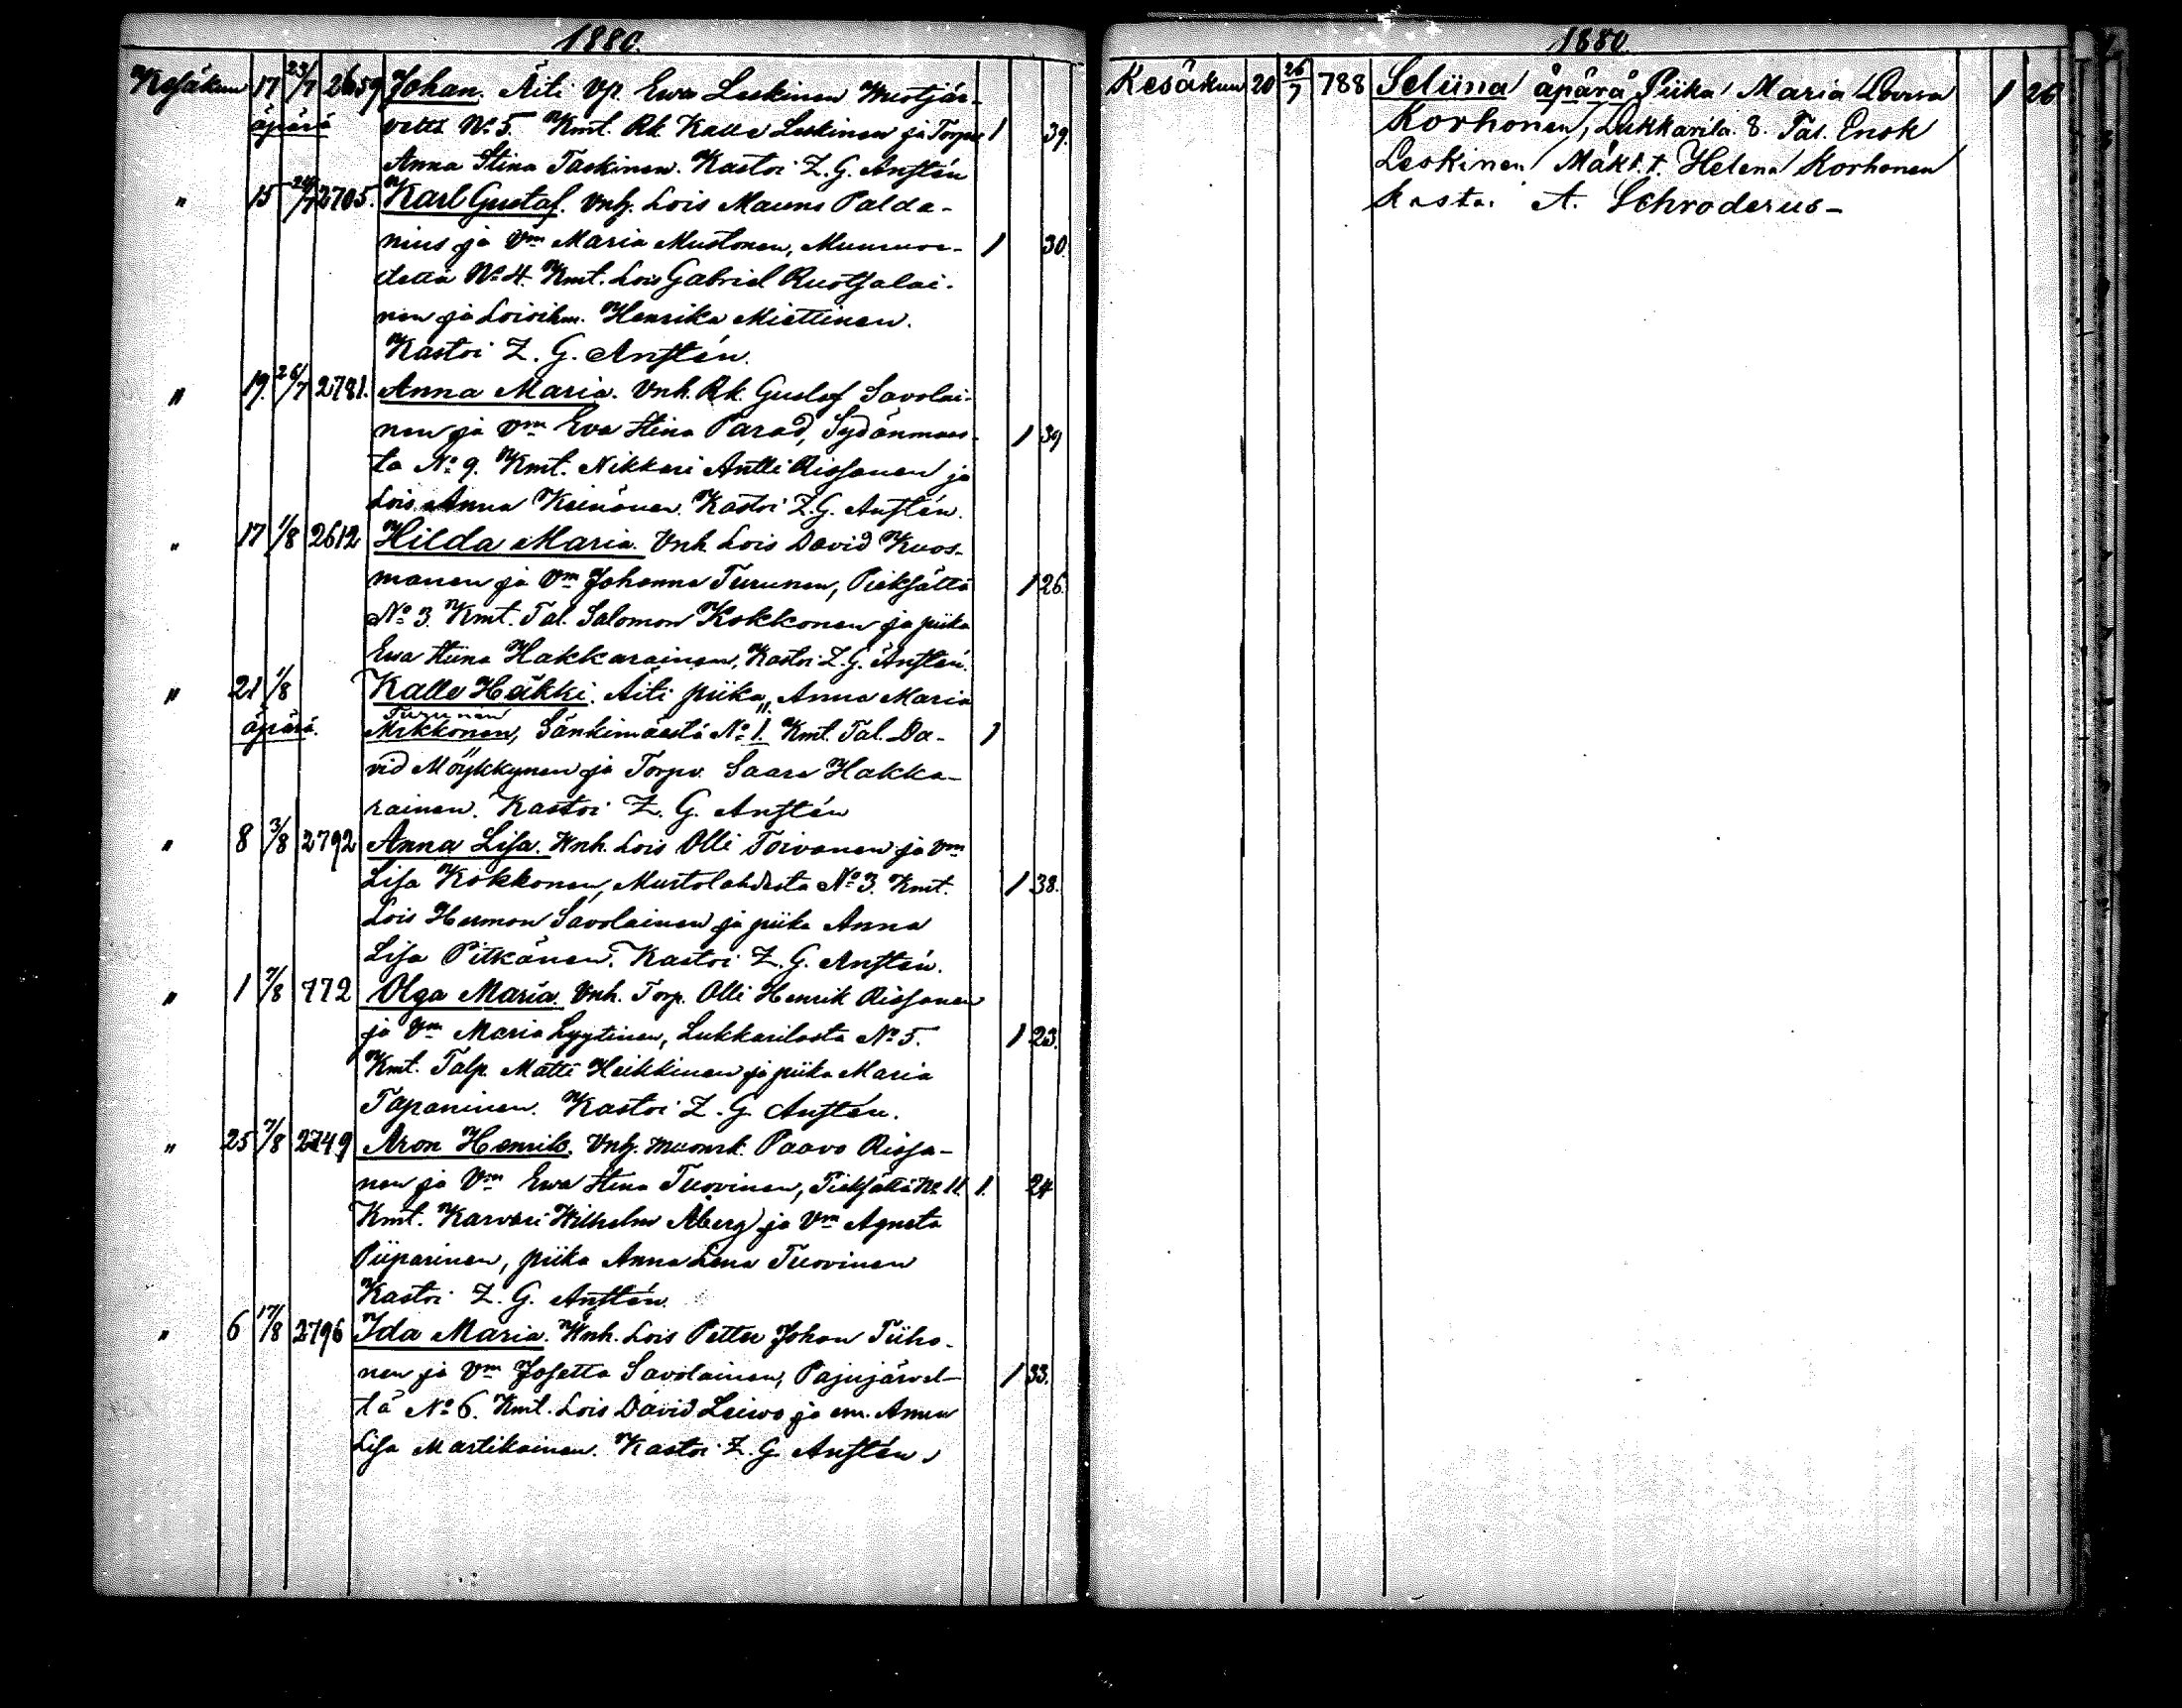 1880.
Kesäkuu 17 23/7 2659 Johan. Äiti Vp. Ewa Leskinen Kuotjär-
äpärä veltä No 5. Kmt. Rk Kalle Leskinen ja Torpv 1 39.
Anna Stina Taskinen. Kastoi Z. G. Anstén
" 15 24/7 2705. Karl Gustaf. Vnh. Lois Mauns Palda-
nius ja Vm Maria Mustonen, Muuruve- 1 30.
deltä No 4. Kmt. Lois Gabriel Ruotsalai-
nen ja Loisihm. Henrika Miettinen.
Kastoi Z. G. Anstén.
" 19. 26/7 2781. Anna Maria. Vnh. Rk. Gustaf Savolai-
nen ja Vm Eva Stina Parad, Sydänmaas- 1 39
ta No 9. Kmt. Nikkari Antti Rissanen ja
Lois. Anna Keinänen. Kastoi Z. G. Anstén.
" 17 1/8 2612 Hilda Maria. Vnh. Lois David Kuos-
manen ja Vm Johanna Turunen, Pieksältä 1 26.
No 3. Kmt. Tal. Salomon Kokkonen ja piika
Ewa Stina Hakkarainen. Kastoi Z. G. Anstén.
" 21 1/8 Kalle Häkki. Äiti piika Anna Maria
Turunen
äpärä. Mikkonen, Sänkimäestä No 1. Kmt. Tal. Da- 1
vid Möykkynen ja Torpv. Saara Hakka-
rainen. Kastoi Z. G. Anstén
" 8 3/8 2792 Anna Lisa. Vnh. Lois Olli Toivanen ja Vm
Lisa Kokkonen, Mustolahdesta No 3. Kmt. 1 38.
Lois Herman Savolainen ja piika Anna
Lisa Pitkänen. Kastoi Z. G. Anstén.
" 1 7/8 772 Olga Maria. Vnh. Torp. Olli Henrik Rissanen
ja Vm Maria Lyytinen, Lukkarilasta No 5. 1 23.
Kmt. Talp. Matti Heikkinen ja piika Maria
Tapaninen. Kastoi Z. G. Anstén.
" 25 7/8 2749 Aron Henrik. Vnh. muonrk. Paavo Rissa-
nen ja Vm Ewa Stina Tuovinen, Pieksältä No 11. 1. 24
Kmt. Karvari Wilhelm Åberg ja Vm Agneta
Piiparinen, piika Anna Lena Tuovinen
Kastoi Z. G. Anstén.
" 6 17/8 2796 Ida Maria. Vnh. Lois Petter Johan Tiiho-
nen ja Vm Josetta Savolainen, Pajujärvel- 1 33.
tä No 6. Kmt. Lois David Leivo ja em. Anna
Lisa Martikainen. Kastoi Z. G. Anstén.
1880.
Kesäkuu 20 26/7 788 Seliina äpärä Piika Maria Lovisa 1 26
Korhonen, Lukkarila. 8. Tal. Enok
Leskinen Mäkt. t. Helena Korhonen
Kastoi A. Schroderus-